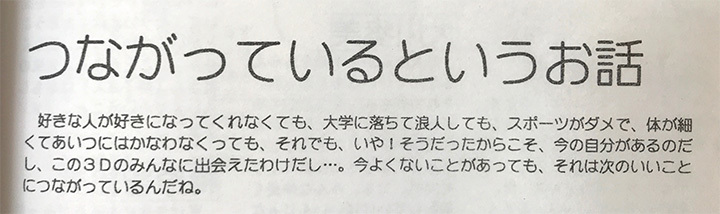 つながっているというお話
好きな人が好きになってくれなくても、大学に落ちて浪人しても、スポーツがダメで、体が細
くてあいつにはかなわなくっても、それでも、いや！そうだったからこそ、今の自分があるのだ
し、この３Ｄのみんなに出会えたわけだし…。今よくないことがあっても、それは次のいいこと
につながっているんだね。